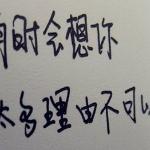 有时会想你
太多理由不可以